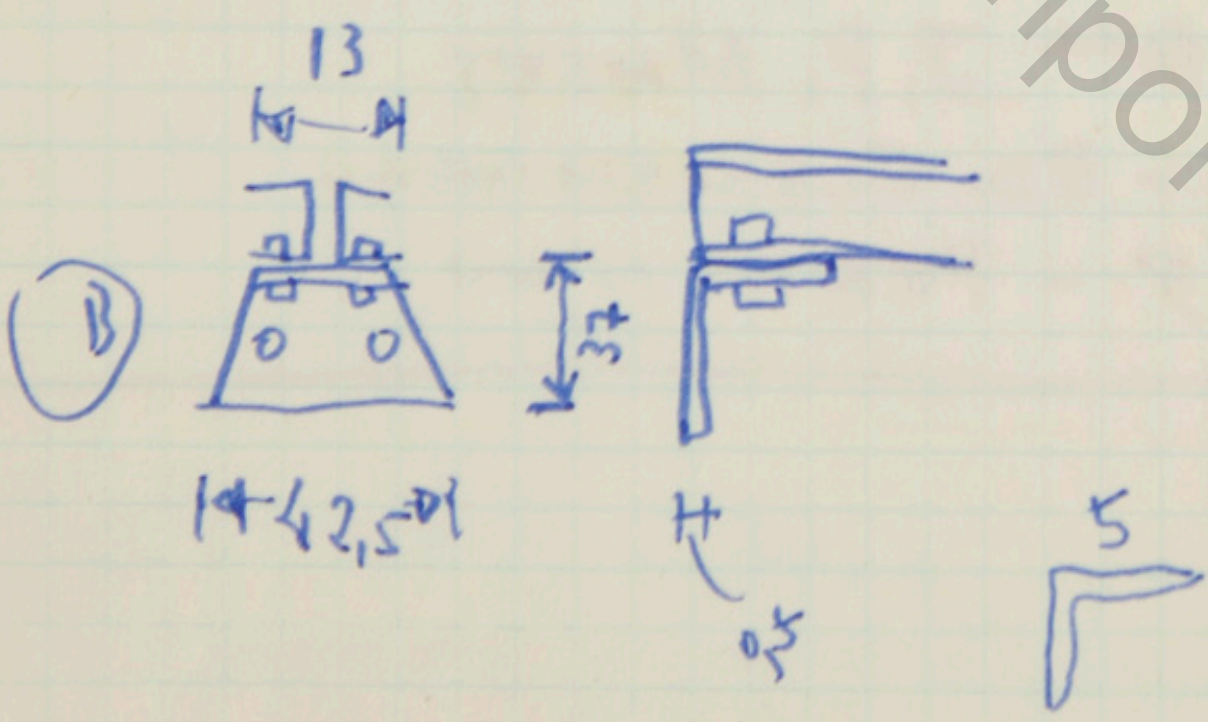 13
B
37
42,5
0,5
5